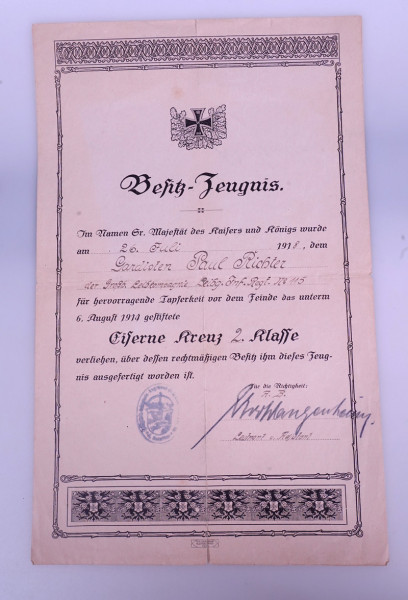 Besitz-Zeugnis.
Im Namen Sr. Majestät des Kaisers und Königs wurde
am 26. Juli 1918, dem
Paul Richter
der Inf. Regt. No 115
für hervorragende Tapferkeit vor dem Feinde das unterm
6. August 1914 gestiftete
Eiserne Kreuz 2. Klasse
verliehen, über dessen rechtmäßigen Besitz ihm dieses Zeug-
nis ausgefertigt worden ist.
Für die Richtigkeit: